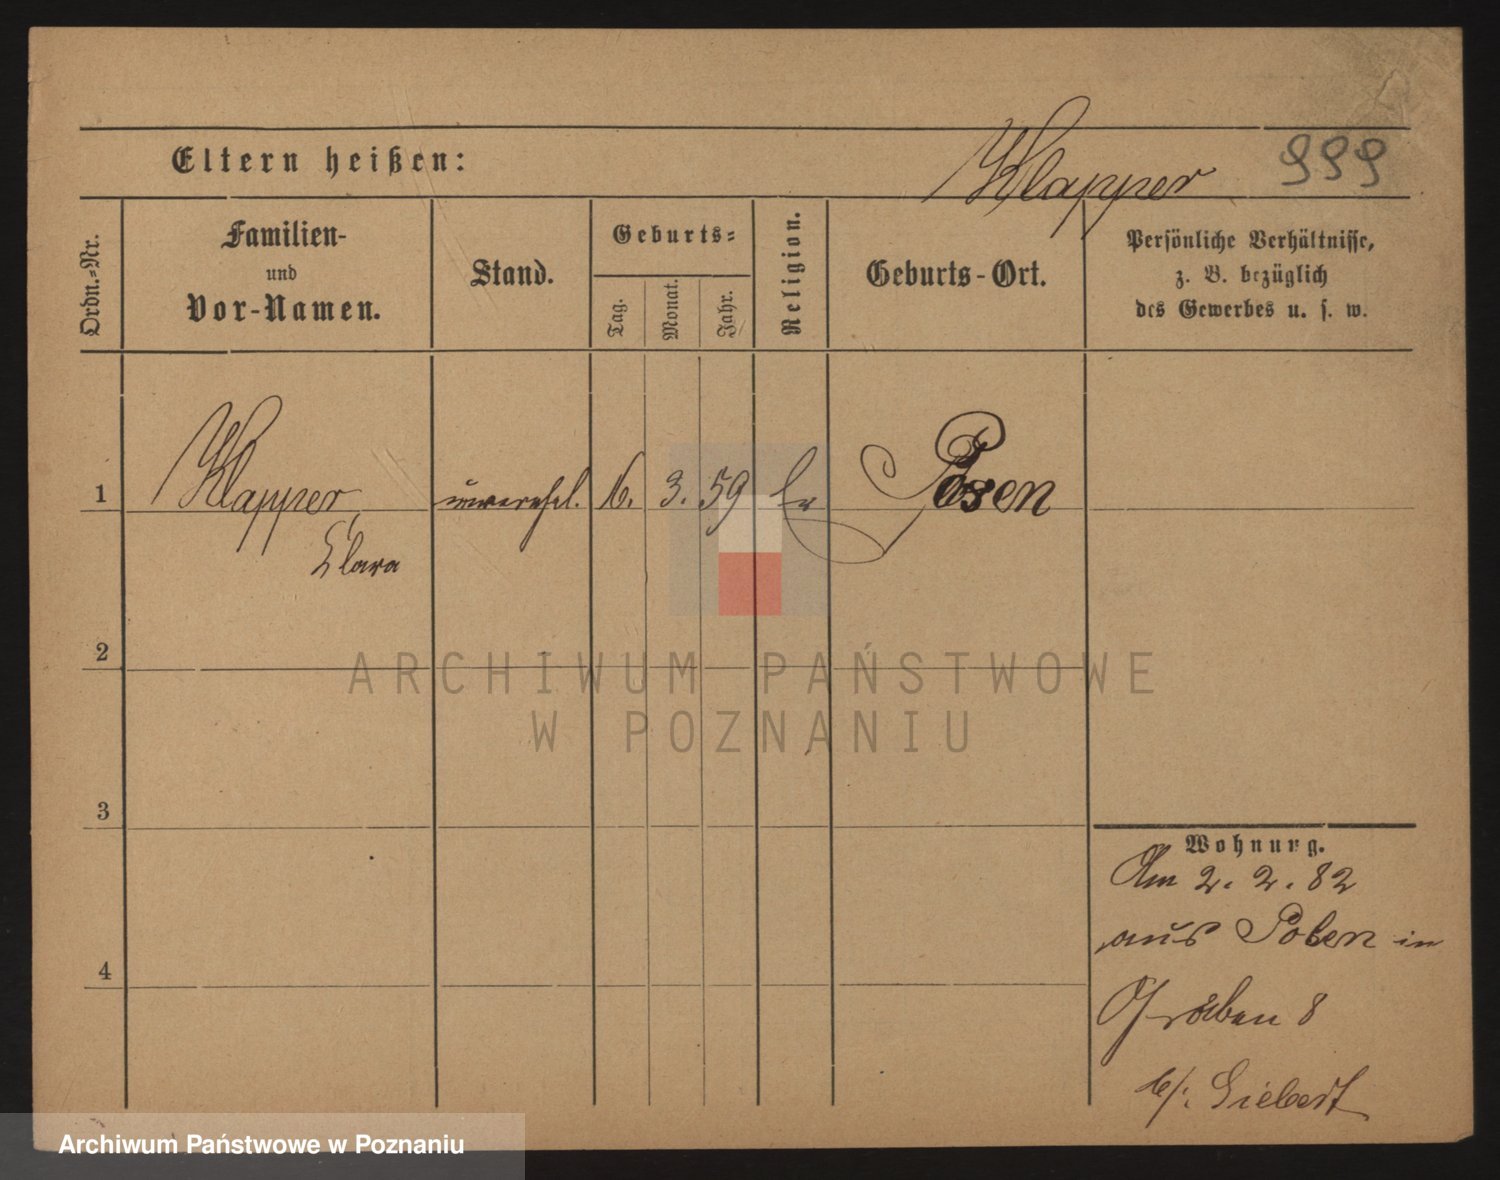 Eltern heißen:
Klapper
999
Ordn.-Nr.
Familien-
und
Vor-Namen.
Stand.
Geburts-
Tag.
Monat.
Jahr.
Religion.
Geburts-Ort.
Persönliche Verhältnisse,
z. B. bezüglich
des Gewerbes u. s. w.
1
Klapper,
Clara
unverehel.
6.
3.
59
Posen
2
3
4
Wohnung.
Am 2. 2. 82
aus Posen in
Graben 8
b/: Siebert
ARCHIWUM PAŃSTWOWE
W POZNANIU
Archiwum Państwowe w Poznaniu